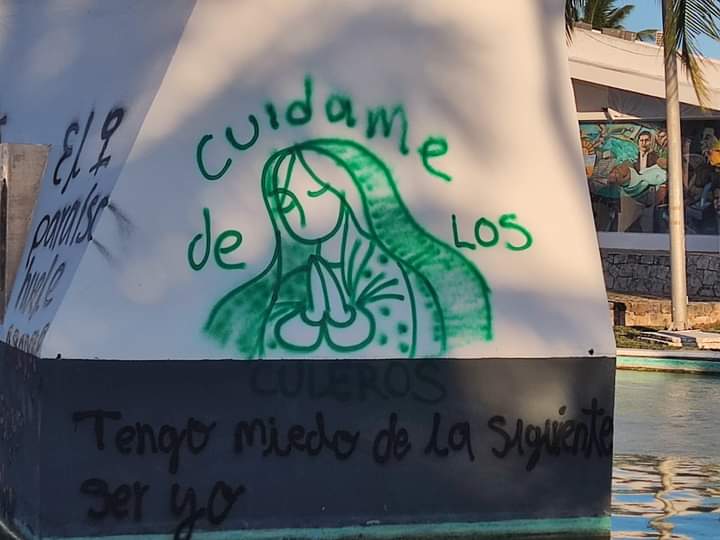 El
paraíso
huele
Cuidame
de LOS
CULEROS
Tengo miedo de la siguiente
ser yo